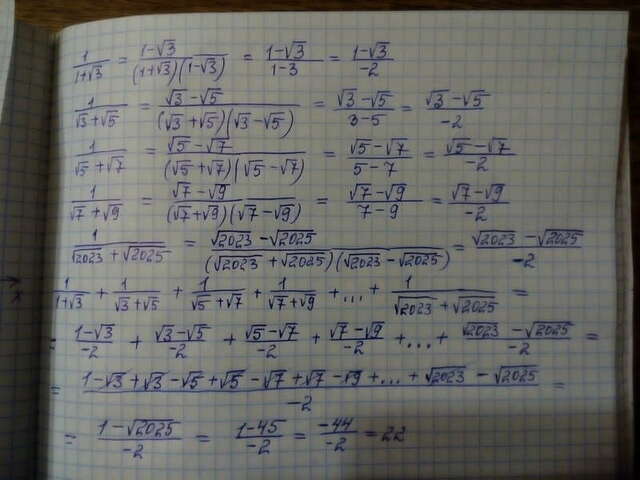 1/(1+√3) = (1-√3)/((1+√3)(1-√3)) = (1-√3)/(1-3) = (1-√3)/-2
1/(√3+√5) = (√3-√5)/((√3+√5)(√3-√5)) = (√3-√5)/(3-5) = (√3-√5)/-2
1/(√5+√7) = (√5-√7)/((√5+√7)(√5-√7)) = (√5-√7)/(5-7) = (√5-√7)/-2
1/(√7+√9) = (√7-√9)/((√7+√9)(√7-√9)) = (√7-√9)/(7-9) = (√7-√9)/-2
1/(√2023+√2025) = (√2023-√2025)/((√2023+√2025)(√2023-√2025)) = (√2023-√2025)/-2
1/(1+√3) + 1/(√3+√5) + 1/(√5+√7) + 1/(√7+√9) + ... + 1/(√2023+√2025) =
= (1-√3)/-2 + (√3-√5)/-2 + (√5-√7)/-2 + (√7-√9)/-2 + ... + (√2023-√2025)/-2 =
= (1-√3+√3-√5+√5-√7+√7-√9+...+√2023-√2025)/-2 =
= (1-√2025)/-2 = (1-45)/-2 = -44/-2 = 22